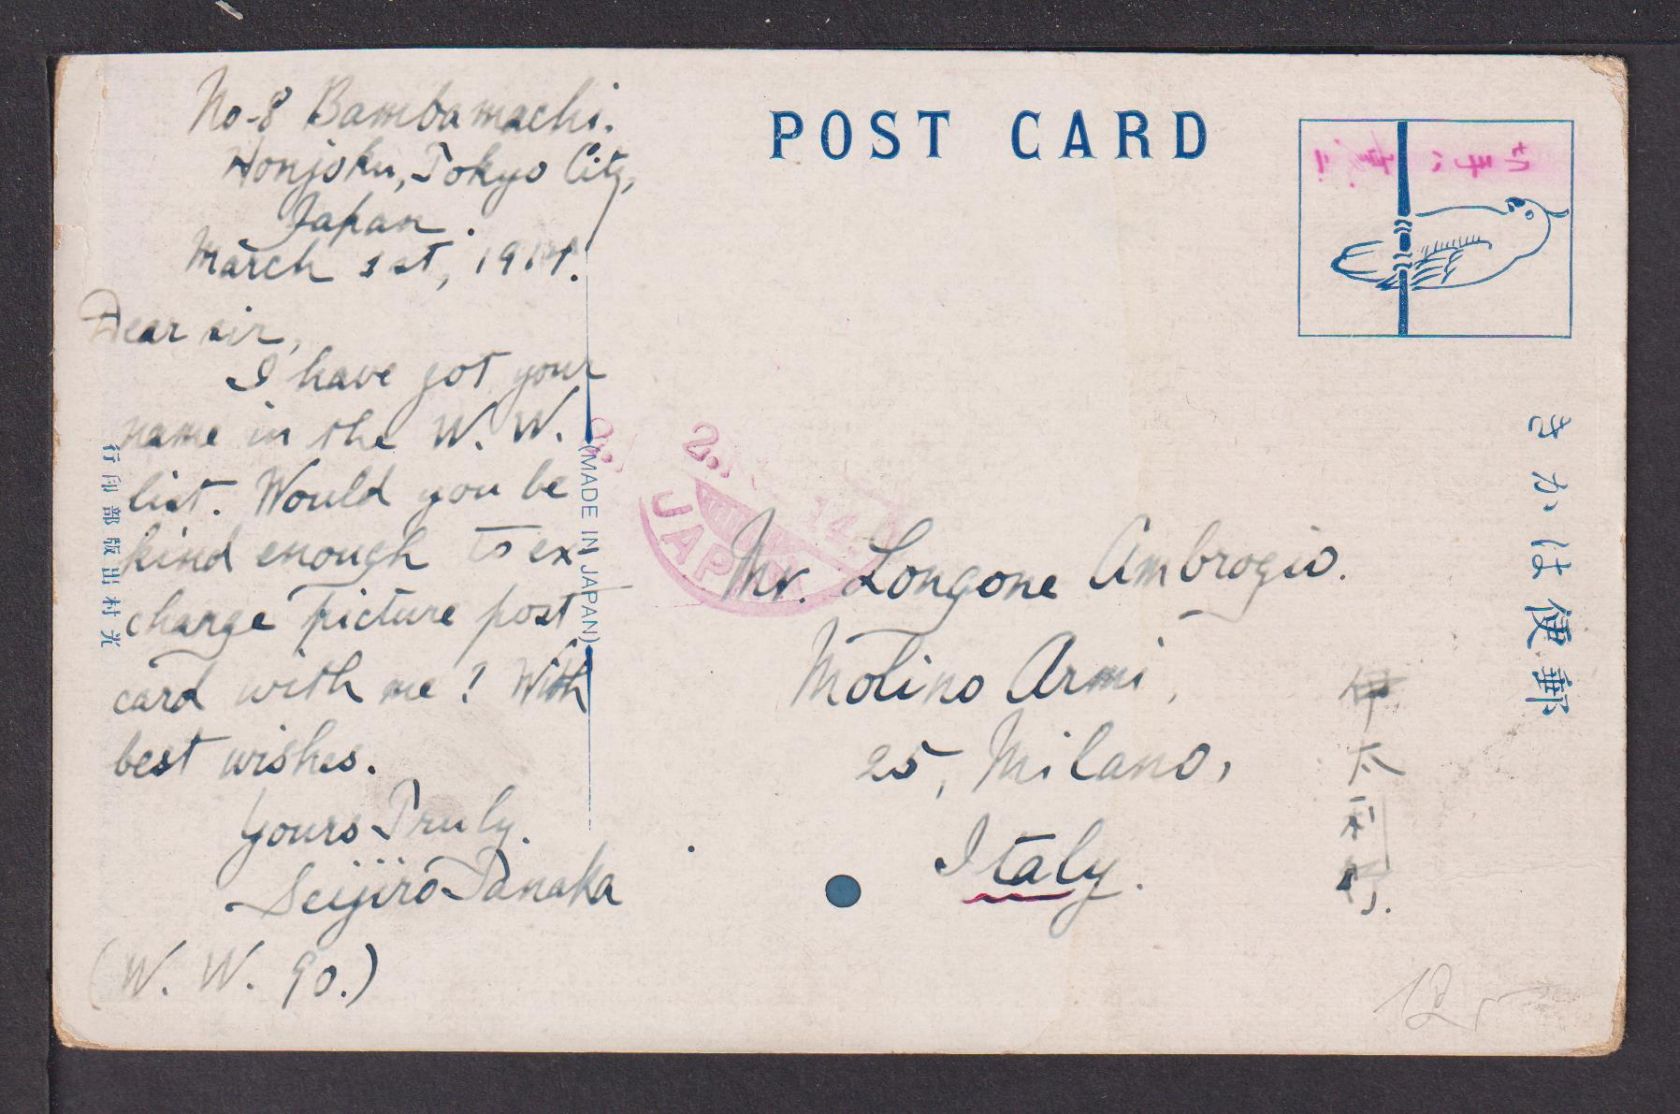 No-8 Bambamachi.
Honjoku, Tokyo City,
Japan.
March 1st, 1914.
Dear sir,
I have got your
name in the W. W.
list. Would you be
kind enough to ex-
change picture post
card with me? With
best wishes.
Yours Truly.
Seijiro Tanaka
(W. W. 90.)
行印部版出村光
(MADE IN JAPAN)
POST CARD
JAPAN
Mr. Longone Ambrogio.
Molino Armi,
25, Milano,
Italy.
伊太利行
きかは便郵
12